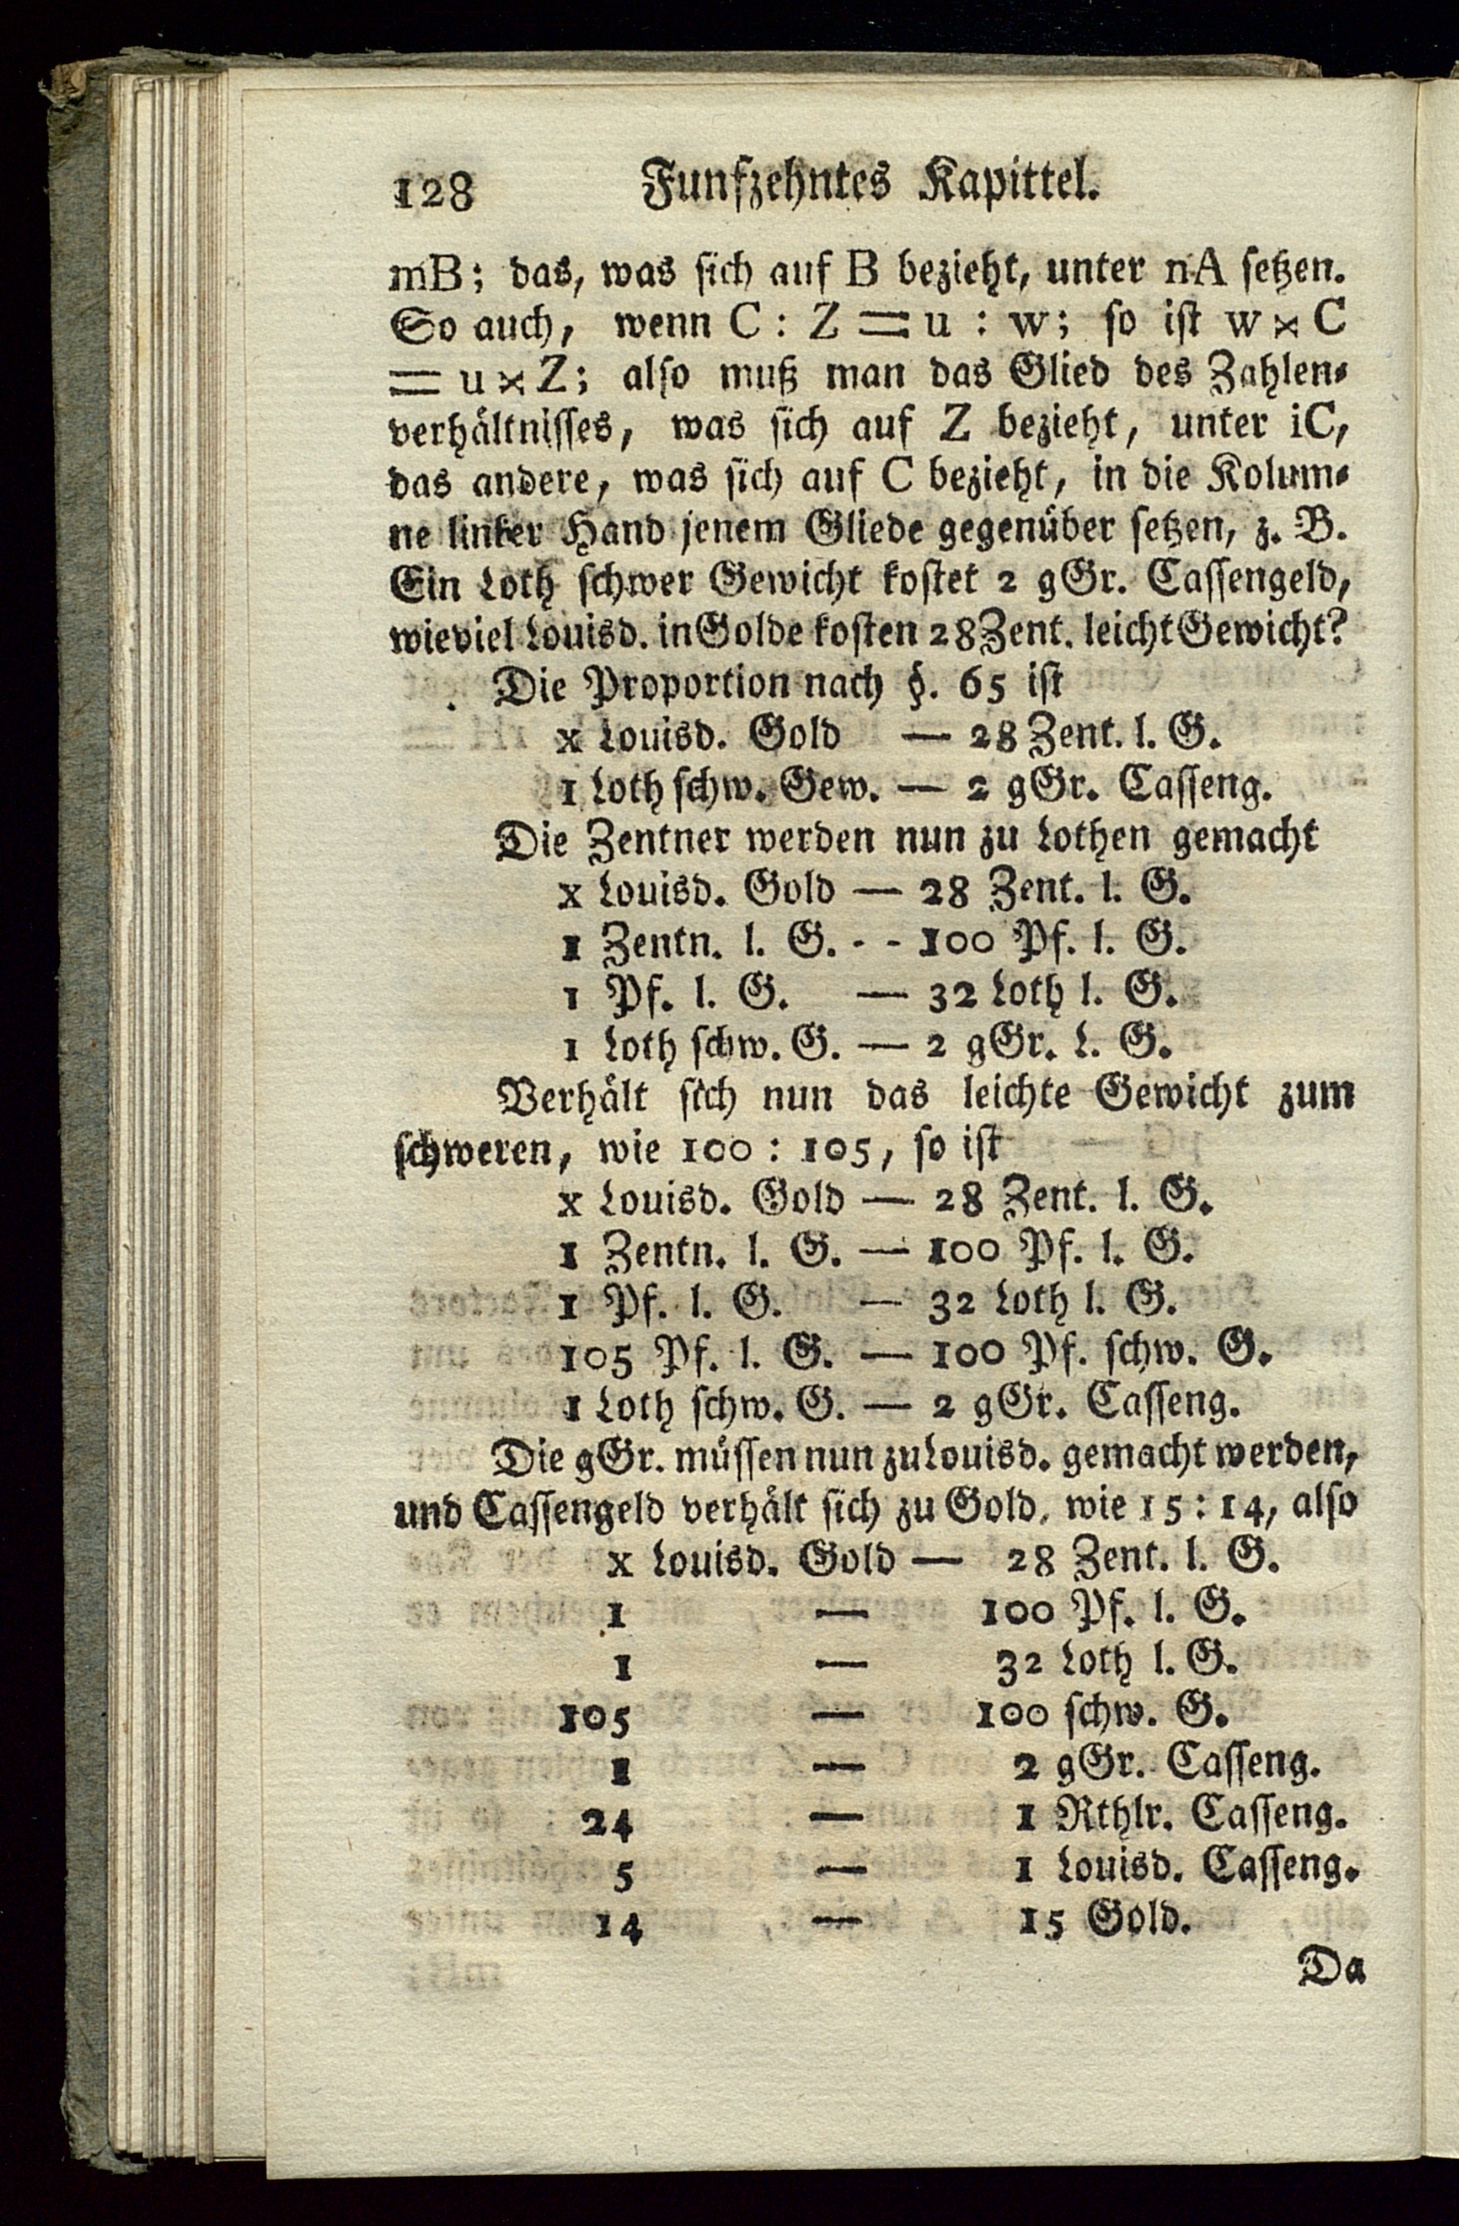 128 Funfzehntes Kapittel.
mB; das, was sich auf B bezieht, unter nA setzen.
So auch, wenn C : Z = u : w; so ist w × C
= u × Z; also muß man das Glied des Zahlen-
verhältnisses, was sich auf Z bezieht, unter iC,
das andere, was sich auf C bezieht, in die Kolum-
ne linker Hand jenem Gliede gegenüber setzen, z. B.
Ein Loth schwer Gewicht kostet 2 gGr. Cassengeld,
wieviel Louisd. in Golde kosten 28 Zent. leicht Gewicht?
Die Proportion nach §. 65 ist
x Louisd. Gold — 28 Zent. l. G.
1 Loth schw. Gew. — 2 gGr. Casseng.
Die Zentner werden nun zu Lothen gemacht
x Louisd. Gold — 28 Zent. l. G.
1 Zentn. l. G. - - 100 Pf. l. G.
1 Pf. l. G. — 32 Loth l. G.
1 Loth schw. G. — 2 gGr. L. G.
Verhält sich nun das leichte Gewicht zum
schweren, wie 100 : 105, so ist
x Louisd. Gold — 28 Zent. l. G.
1 Zentn. l. G. — 100 Pf. l. G.
1 Pf. l. G. — 32 Loth l. G.
105 Pf. l. G. — 100 Pf. schw. G.
1 Loth schw. G. — 2 gGr. Casseng.
Die gGr. müssen nun zu Louisd. gemacht werden,
und Cassengeld verhält sich zu Gold, wie 15 : 14, also
x Louisd. Gold — 28 Zent. l. G.
1 — 100 Pf. l. G.
1 — 32 Loth l. G.
105 — 100 schw. G.
1 — 2 gGr. Casseng.
24 — 1 Rthlr. Casseng.
5 — 1 Louisd. Casseng.
14 — 15 Gold.
Da